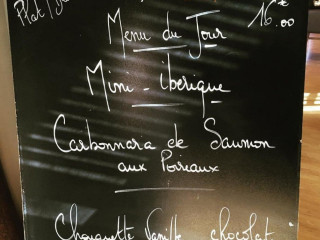 Plat/
16€.00
Menu du Jour
Mini - ibérique
Carbonnara de Saumon
aux Poireaux
Chouquette Vanille chocolat